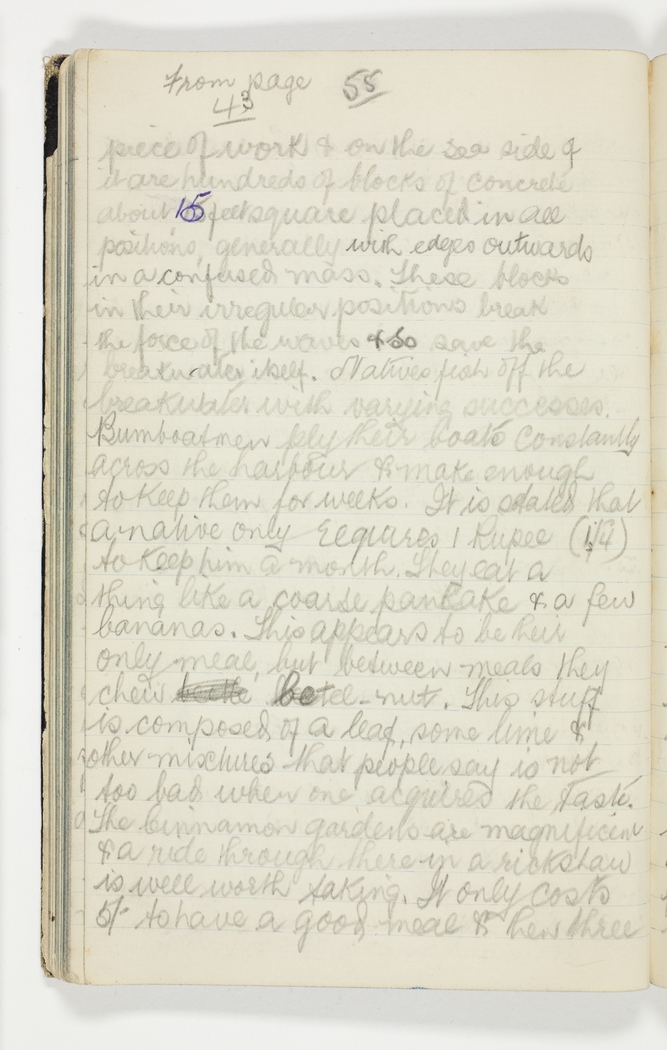 From page 55
43
piece of work & on the sea side of
it are hundreds of blocks of concrete
about 15 feet square placed in all
positions, generally with edges outwards
in a confused mass. These blocks
in their irregular positions break
the force of the waves & so save the
breakwater itself. Natives fish off the
breakwater with varying successes.
Bumboatmen ply their boats constantly
across the harbour & make enough
to keep them for weeks. It is stated that
a native only requires 1 Rupee (1/4)
to keep him a month. They eat a
thing like a coarse pancake & a few
bananas. This appears to be their
only meal, but between meals they
chew betel-nut. This stuff
is composed of a leaf, some lime &
other mixtures that people say is not
too bad when one acquired the taste.
The Cinnamon gardens are magnificent
& a ride through there in a rickshaw
is well worth taking. It only costs
5/- to have a good meal & hew three